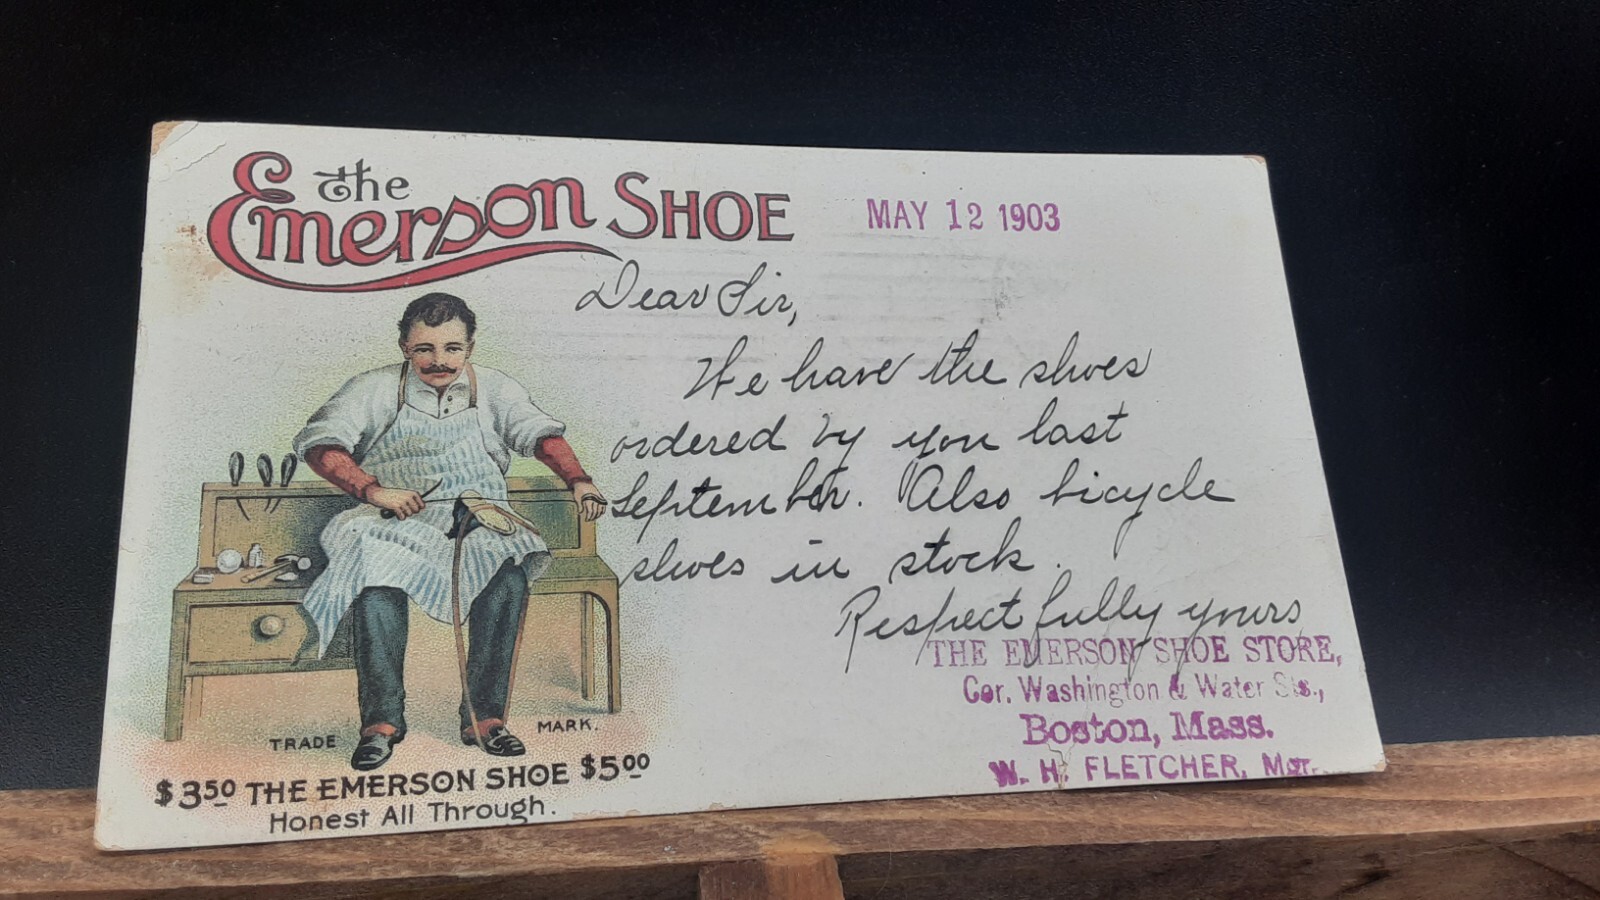 The Emerson SHOE
MAY 12 1903
Dear Sir,
We have the shoes
ordered by you last
September. Also bicycle
shoes in stock.
Respectfully yours
THE EMERSON SHOE STORE,
Cor. Washington & Water Sts.,
Boston, Mass.
W. H. FLETCHER, Mgr.
TRADE MARK.
$3.50 THE EMERSON SHOE $5.00
Honest All Through.